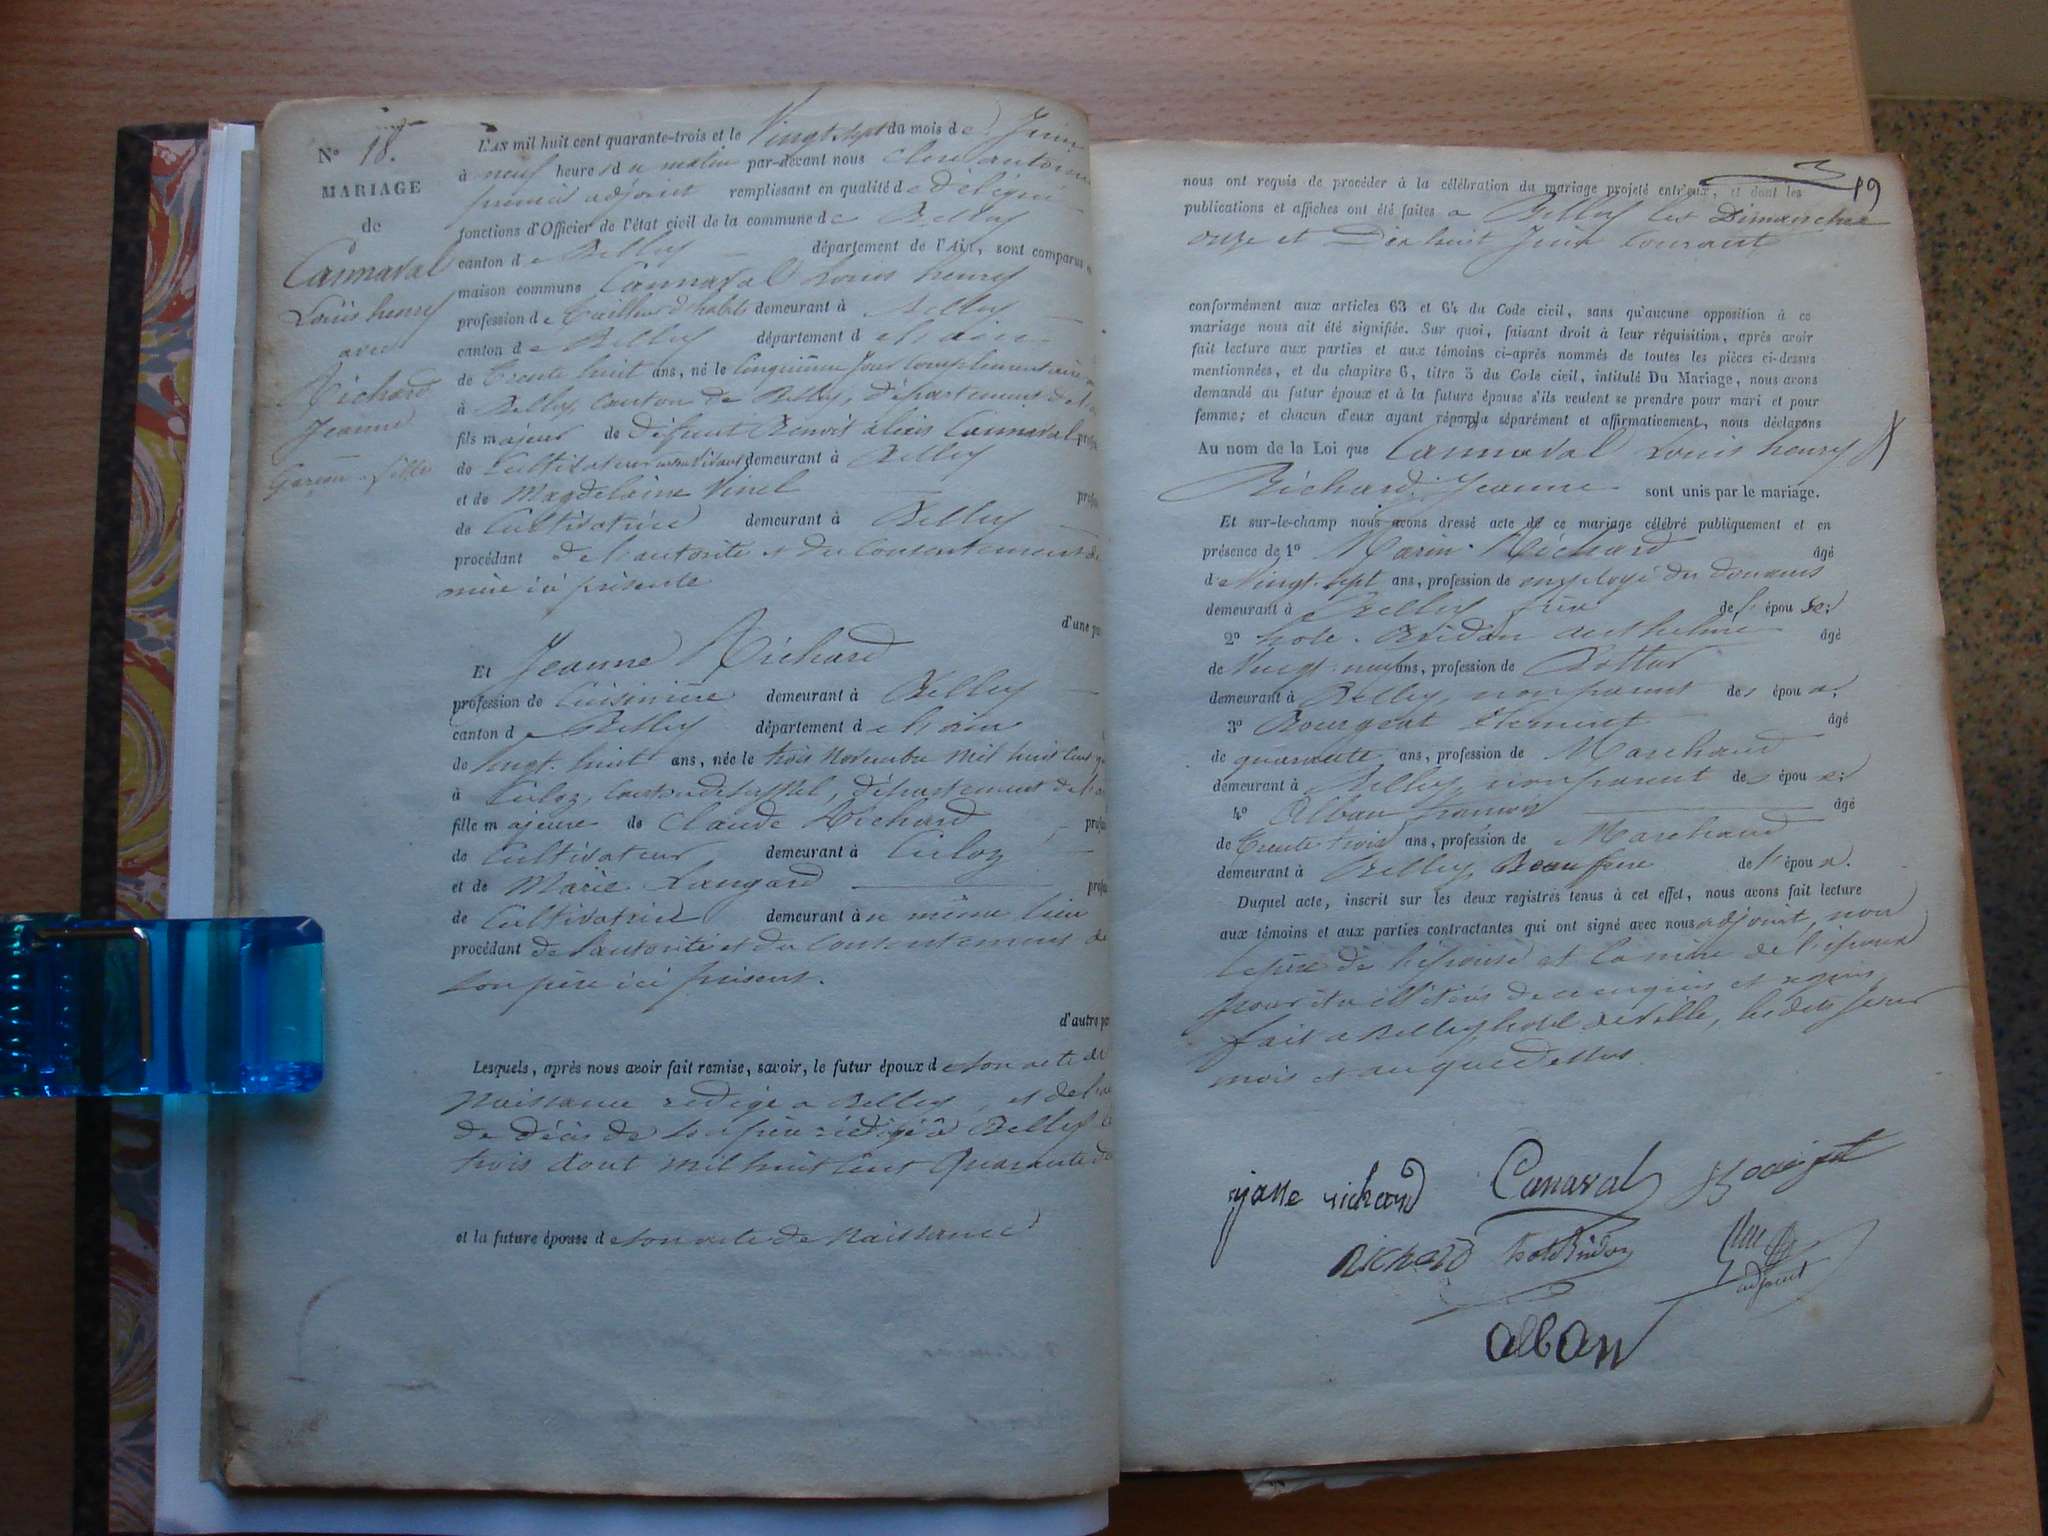 N° 18.
MARIAGE
de
Cannaval
Louis henry
avec
Richard
Jeanne
Garçon fille
L'AN mil huit cent quarante-trois et le Vingt sept du mois de Juin
à neuf heures du matin par-devant nous antoine
premier adjoint remplissant en qualité de délégué
fonctions d'Officier de l'état civil de la commune de Belley
canton de Belley département de l'Ain, sont comparus
maison commune Cannaval Louis henry
profession de Tailleur d'habits demeurant à Belley
canton de Belley département de l'ain
de Trente huit ans, né le Cinquième jour Complémentaire
à Belley, Canton de Belley, Département de l'
fils majeur de défunt Benoit Cannaval
de Cultivateur demeurant à Belley
et de Magdelaine Vinel
de Cultivatrice demeurant à Belley
procédant de l'autorité et du Consentement de
mère ici présente
d'une
Et Jeanne Richard
profession de Cuisinière demeurant à Belley
canton de Belley département de l'ain
de Vingt-huit ans, née le trois Novembre Mil huit Cent
à Culoz, Canton de Seyssel, Département de l'
fille majeure de Claude Richard
de Cultivateur demeurant à Culoz
et de Marie Langard
de Cultivatrice demeurant à même lieu
procédant de l'autorité et du Consentement de
son père ici présent.
d'autre
Lesquels, après nous avoir fait remise, savoir, le futur époux de son acte de
Naissance redigé a Belley, et de l'
de Décès de son père rédigé à Belley
trois aout mil huit Cent Quarante
et la future épouse de son acte de Naissance
19
nous ont requis de procéder à la célébration du mariage projeté entr'eux, et dont les
publications et affiches ont été faites a Belley les Dimanches
onze et Dix huit Juin Courant
conformément aux articles 63 et 64 du Code civil, sans qu'aucune opposition à ce
mariage nous ait été signifiée. Sur quoi, faisant droit à leur réquisition, après avoir
fait lecture aux parties et aux témoins ci-après nommés de toutes les pièces ci-dessus
mentionnées, et du chapitre 6, titre 5 du Code civil, intitulé Du Mariage, nous avons
demandé au futur époux et à la future épouse s'ils veulent se prendre pour mari et pour
femme; et chacun d'eux ayant répondu séparément et affirmativement, nous déclarons
Au nom de la Loi que Cannaval Louis henry &
Richard Jeanne sont unis par le mariage.
Et sur-le-champ nous avons dressé acte de ce mariage célébré publiquement et en
présence de 1° Marin Richard âgé
de Vingt-sept ans, profession de employé des douanes
demeurant à Belley frère de l'épouse;
2° hote-Bridon anthelme âgé
de Vingt-neuf ans, profession de Bottier
demeurant à Belley, non parent des époux;
3° Bourgeat Clement âgé
de quarante ans, profession de Marchand
demeurant à Belley, non parent des époux;
4° Alban âgé
de Trente trois ans, profession de Marchand
demeurant à Belley Beau frère de l'époux.
Duquel acte, inscrit sur les deux registres tenus à cet effet, nous avons fait lecture
aux témoins et aux parties contractantes qui ont signé avec nous adjoint, non
le père de l'épouse et la mère de l'époux
pour être illitérés de ce enquis et requis,
fait a Belley, hotel de ville, les dits jour
mois et an que dessus.
jane richard Canaval
Richard hote Bridon adjoint
alban